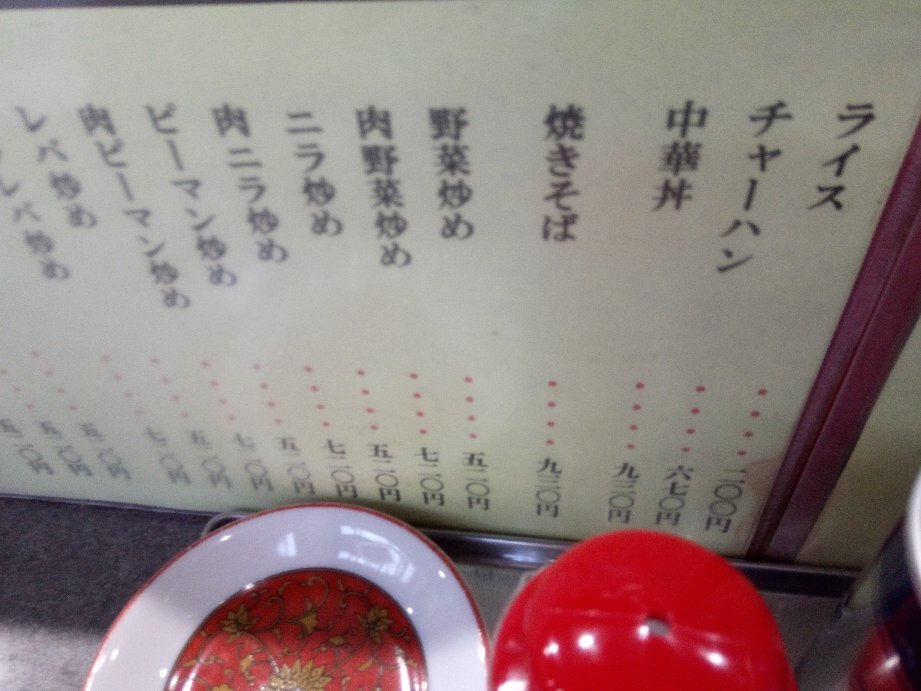 ライス・・・・二〇〇円
チャーハン・・・・六七〇円
中華丼・・・・九三〇円
焼きそば・・・・九三〇円
野菜炒め・・・・五二〇円
肉野菜炒め・・・・七二〇円
ニラ炒め・・・・五二〇円
肉ニラ炒め・・・・七二〇円
ピーマン炒め・・・・五二〇円
肉ピーマン炒め・・・・七二〇円
レバ炒め・・・・五二〇円
レバ炒め